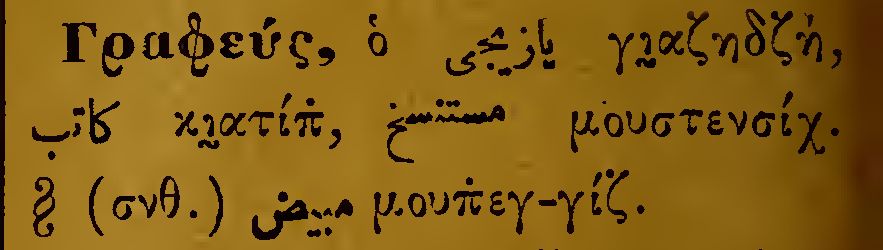 Γραφεύς, ὁ يازيجى γιαζηδζή,
كاتب κιατίπ̇, مستنسخ μουστενσίχ.
§ (συνθ.) مبيض μουπ̇εγ-γίζ.